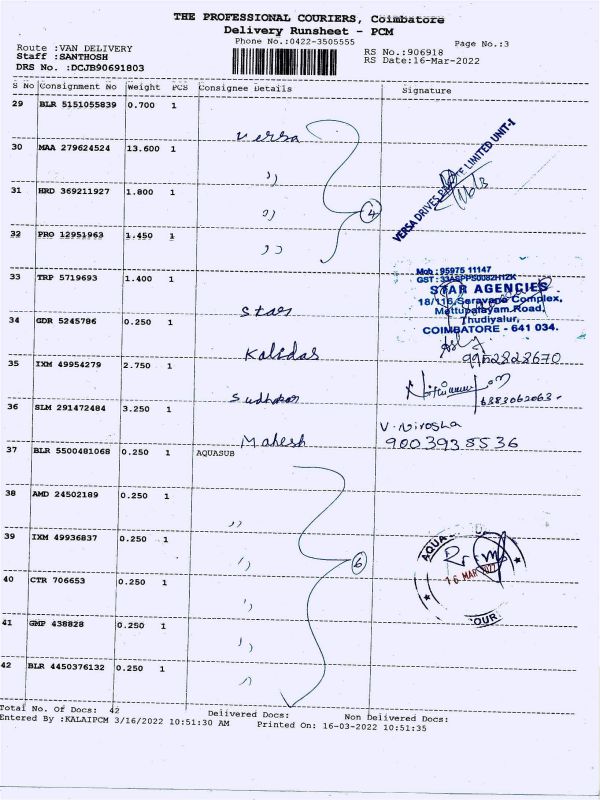 THE PROFESSIONAL COURIERS, Coimbatore
Delivery Runsheet - PCM
Phone No.:0422-3505555
Page No.:3
Route :VAN DELIVERY
RS No.:906918
Staff :SANTHOSH
RS Date:16-Mar-2022
DRS No. :DCJB90691803
S No Consignment No Weight PCS Consignee Details Signature
29 BLR 5151055839 0.700 1 Versa
30 MAA 279624524 13.600 1 ,,
31 HRD 369211927 1.800 1 ,,
4
32 PRO 12951963 1.450 1 ,,
VERSA DRIVES PRIVATE LIMITED UNIT-I
33 TRP 5719693 1.400 1 Star
Mob : 95975 11147
GST : 33AEPPS0082H1ZK
STAR AGENCIES
18/116, Saravana Complex,
Mettupalayam Road,
Thudiyalur,
COIMBATORE - 641 034.
34 GDR 5245786 0.250 1 Kalidas
9952828670
35 IXM 49954279 2.750 1
6383062063.
36 SLM 291472484 3.250 1 Mahesh
V. Nirosha
9003938536
37 BLR 5500481068 0.250 1 AQUASUB
38 AMD 24502189 0.250 1 ,,
39 IXM 49936837 0.250 1 ,,
6
AQUA
16 MAR 2022
40 CTR 706653 0.250 1 ,,
41 GMP 438828 0.250 1 ,,
42 BLR 4450376132 0.250 1 ,,
Total No. Of Docs: 42 Delivered Docs: Non Delivered Docs:
Entered By :KALAIPCM 3/16/2022 10:51:30 AM Printed On: 16-03-2022 10:51:35